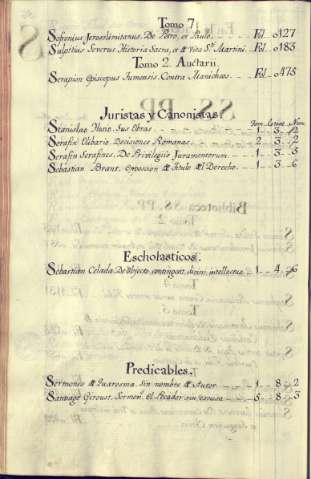 Tomo 7.
Sofronius Jerosolimitanus. De Petro, et Paulo. Fol. 0127
Sulpitius Severus Historia Sacra, et Vita Sti. Martini. Fol. 0183
Tomo 2. Auctarii.
Serapion Episcopus Tumensis. Contra Manichæos. Fol. 0475
Juristas y Canonistas.
Tom. Estant. Num.
Stanislao Sus Obras 1 3 2
Serafin Decisiones Romanas. 2 3 2
Serafin Serafines. De Privilegiis Juramentorum 1 3 5
Sebastian Brant. Exposicion Titulo Derecho. 1 3 6
Escholasticos.
Sebastian Celada. De Objecto contingent. divini, intellectus 1 4 6
Predicables.
Sermones de Quaresma. Sin nombre de Autor 1 8 2
Santiago Giroust. Sermon. El Pecador sin excusa 5 8 3